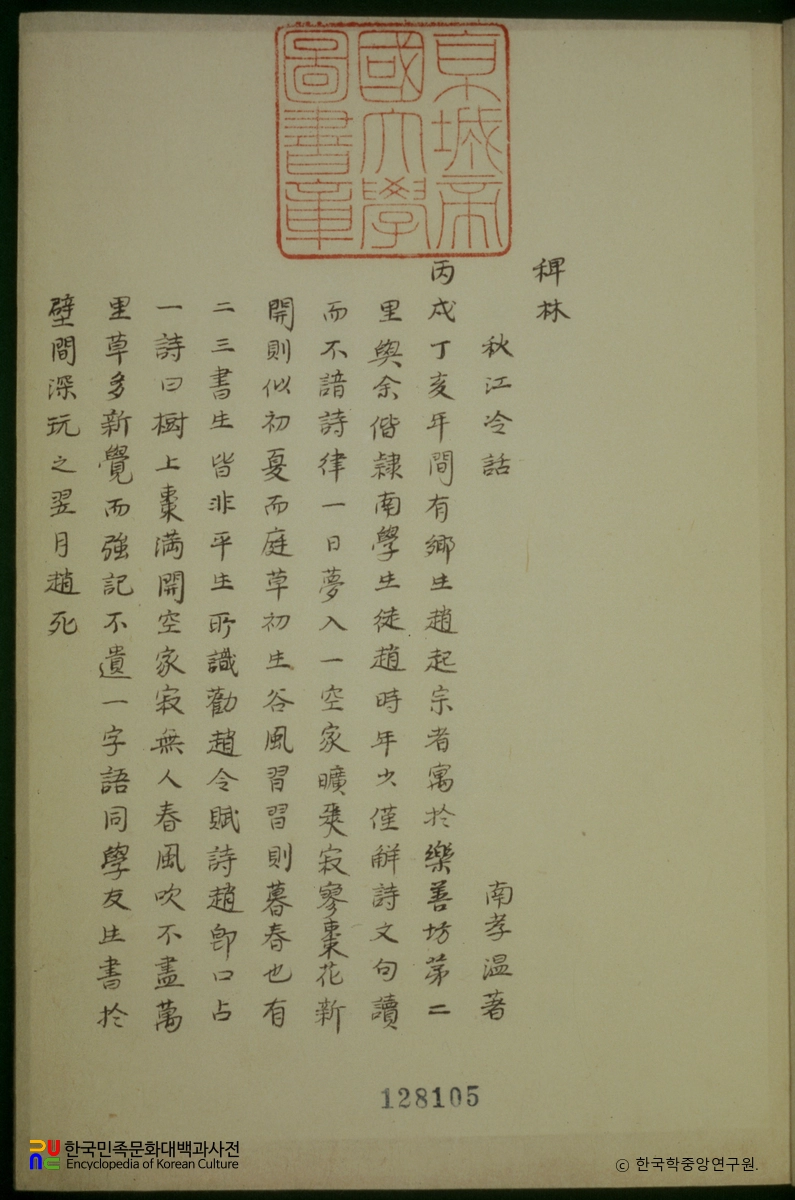 京城帝
國大學
圖書章
稗林
秋江冷話 南孝溫著
丙戌丁亥年間有鄉生趙起宗者寓於樂善坊第二
里與余偕隷南學生徒趙時年少僅觧詩文句讀
而不諳詩律一日夢入一空家曠爽寂寥棗花新
開則似初夏而庭草初生谷風習習則暮春也有
二三書生皆非平生所識勸趙令賦詩趙卽口占
一詩曰樹上棗滿開空家寂無人春風吹不盡萬
里草多新覺而強記不遺一字語同學友生書於
壁間深玩之翌月趙死
128105
한국민족문화대백과사전
Encyclopedia of Korean Culture
© 한국학중앙연구원.